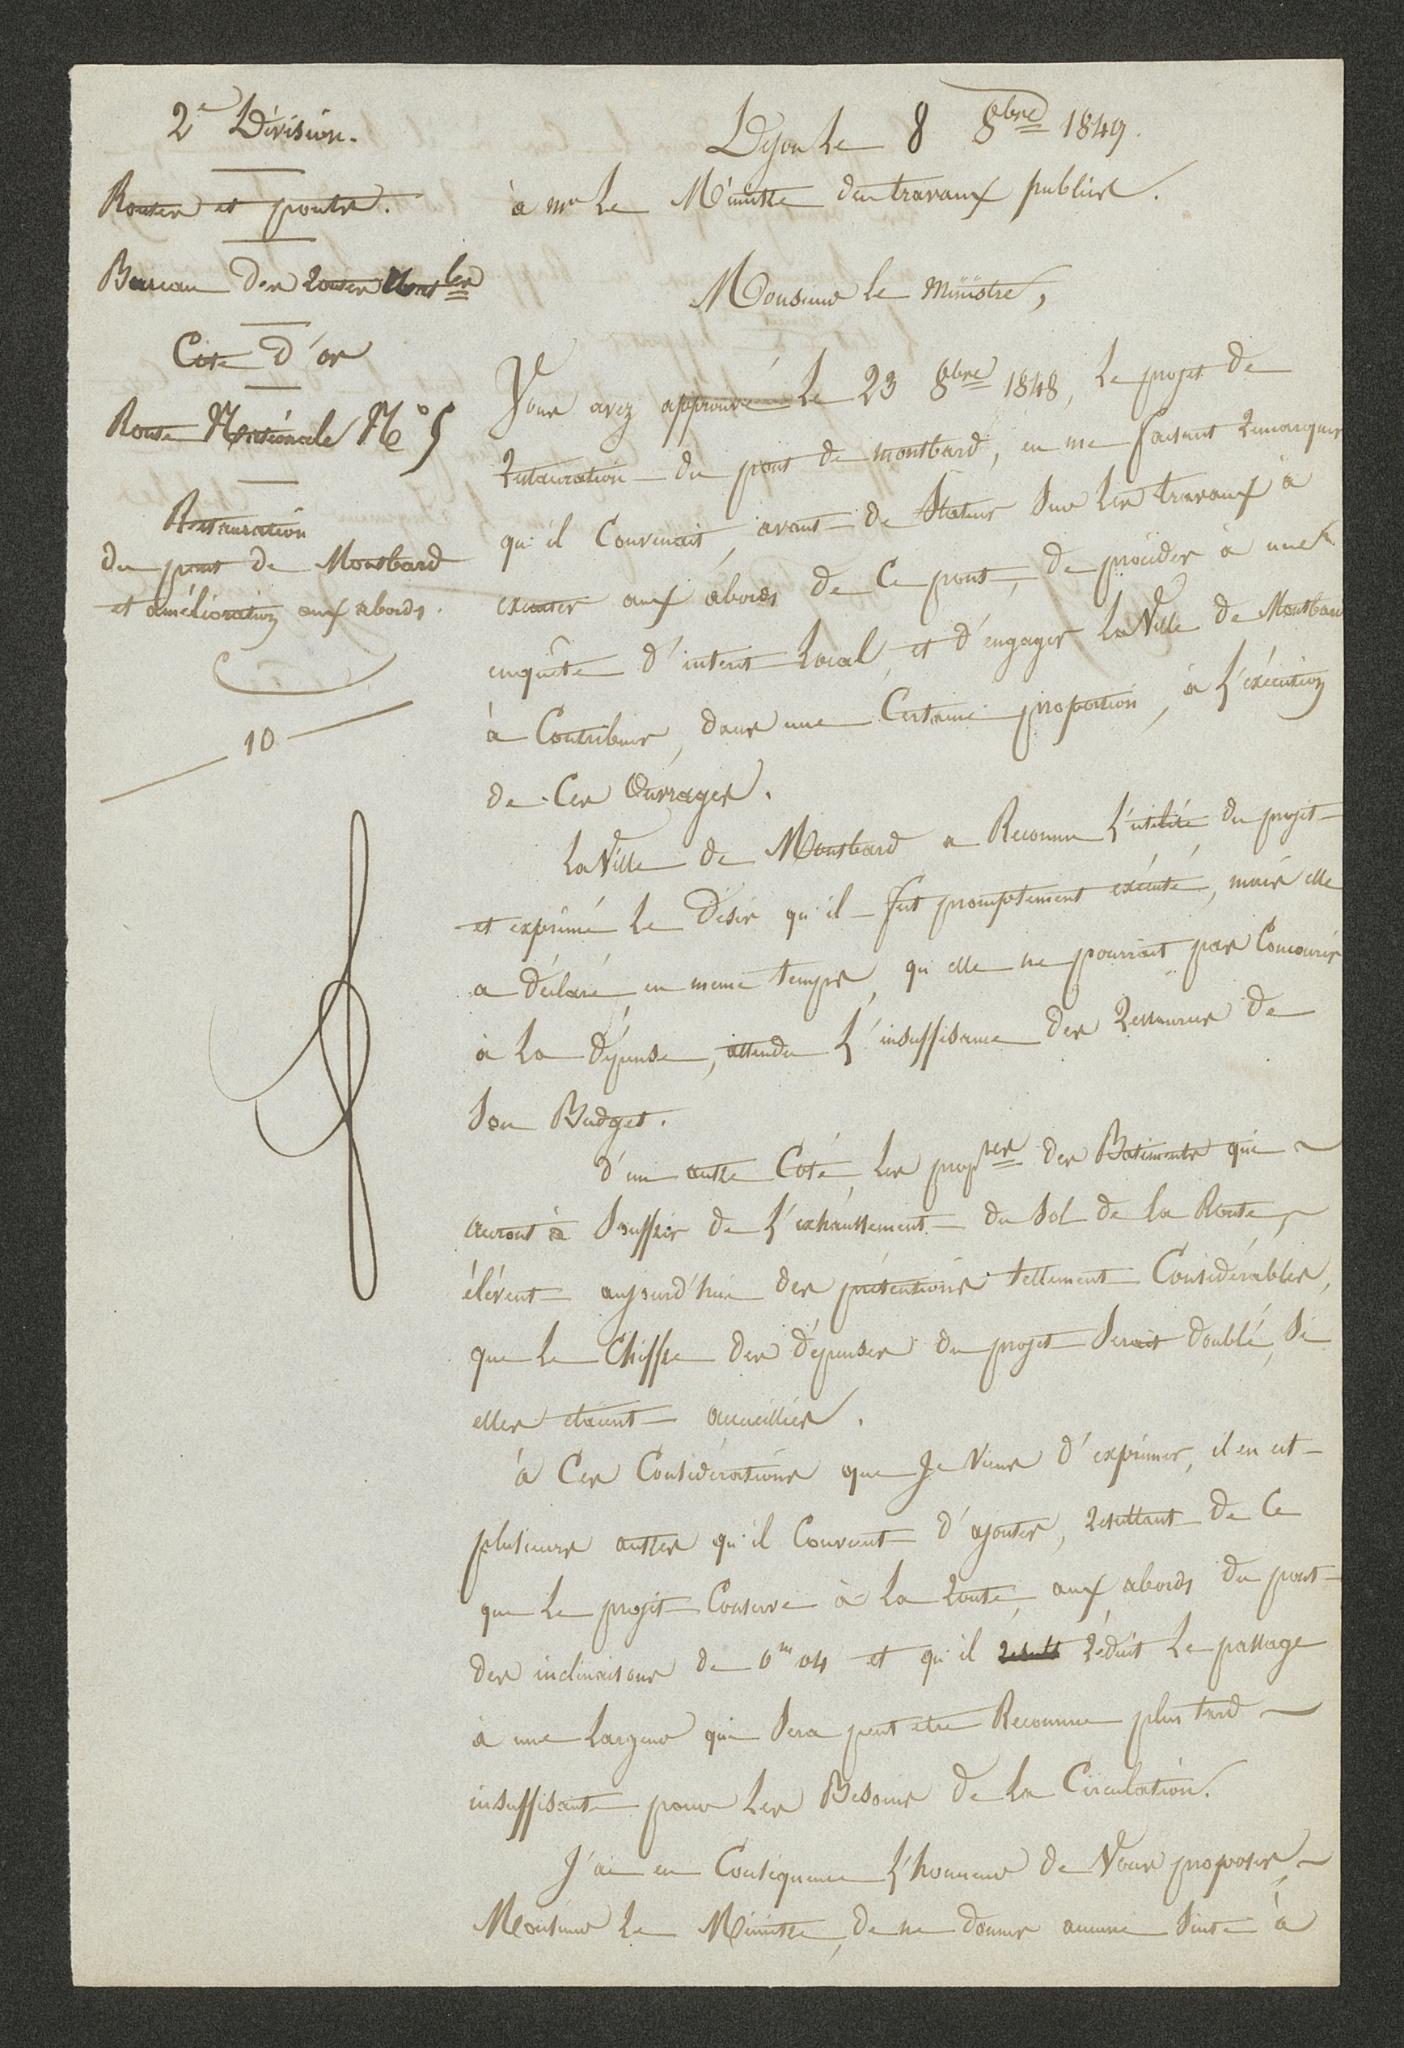 2e Division.
Routes et ponts.
Bureau des routes Nonales
Côte d'or
Route Nationale No 5
Restauration
du pont de Montbard
et amélioration aux abords.
10
Dijon le 8 8bre 1849.
à Mr le Ministre des travaux publics.
Monsieur le Ministre,
Vous avez approuvé le 23 8bre 1848, le projet de
restauration du pont de Montbard, en me faisant remarquer
qu'il convenait, avant de statuer sur les travaux à
executer aux abords de ce pont, de procéder à une
enquête d'interêt local, et d'engager la Ville de Montbard
à contribuer, dans une certaine proportion, à l'exécution
de ces ouvrages.
La Ville de Montbard a reconnu l'utilité du projet
et exprimé le désir qu'il fut promptement exécuté, mais elle
a déclaré, en meme temps, qu'elle ne pourrait pas concourir
à la dépense, attendu l'insuffisance des ressources de
son Budget.
d'un autre coté, les propres des Batiments qui
auront à souffrir de l'exhaussement du sol de la Route,
élévent aujourd'hui des prétentions tellement considérables,
que le chiffre des dépenses du projet serait doublé, si
elles etaient accueillies.
à ces considérations que je viens d'exprimer, il en est
plusieurs autres qu'il convient d'ajouter, resultant de ce
que le projet conserve à la route, aux abords du pont
des inclinaisons de 0m 04 et qu'il réduit le passage
à une largeur qui sera peut etre reconnue plus tard
insuffisante pour les Besoins de la Circulation.
J'ai en conséquence l'honneur de vous proposer,
Monsieur le Ministre, de ne donner aucune suite à